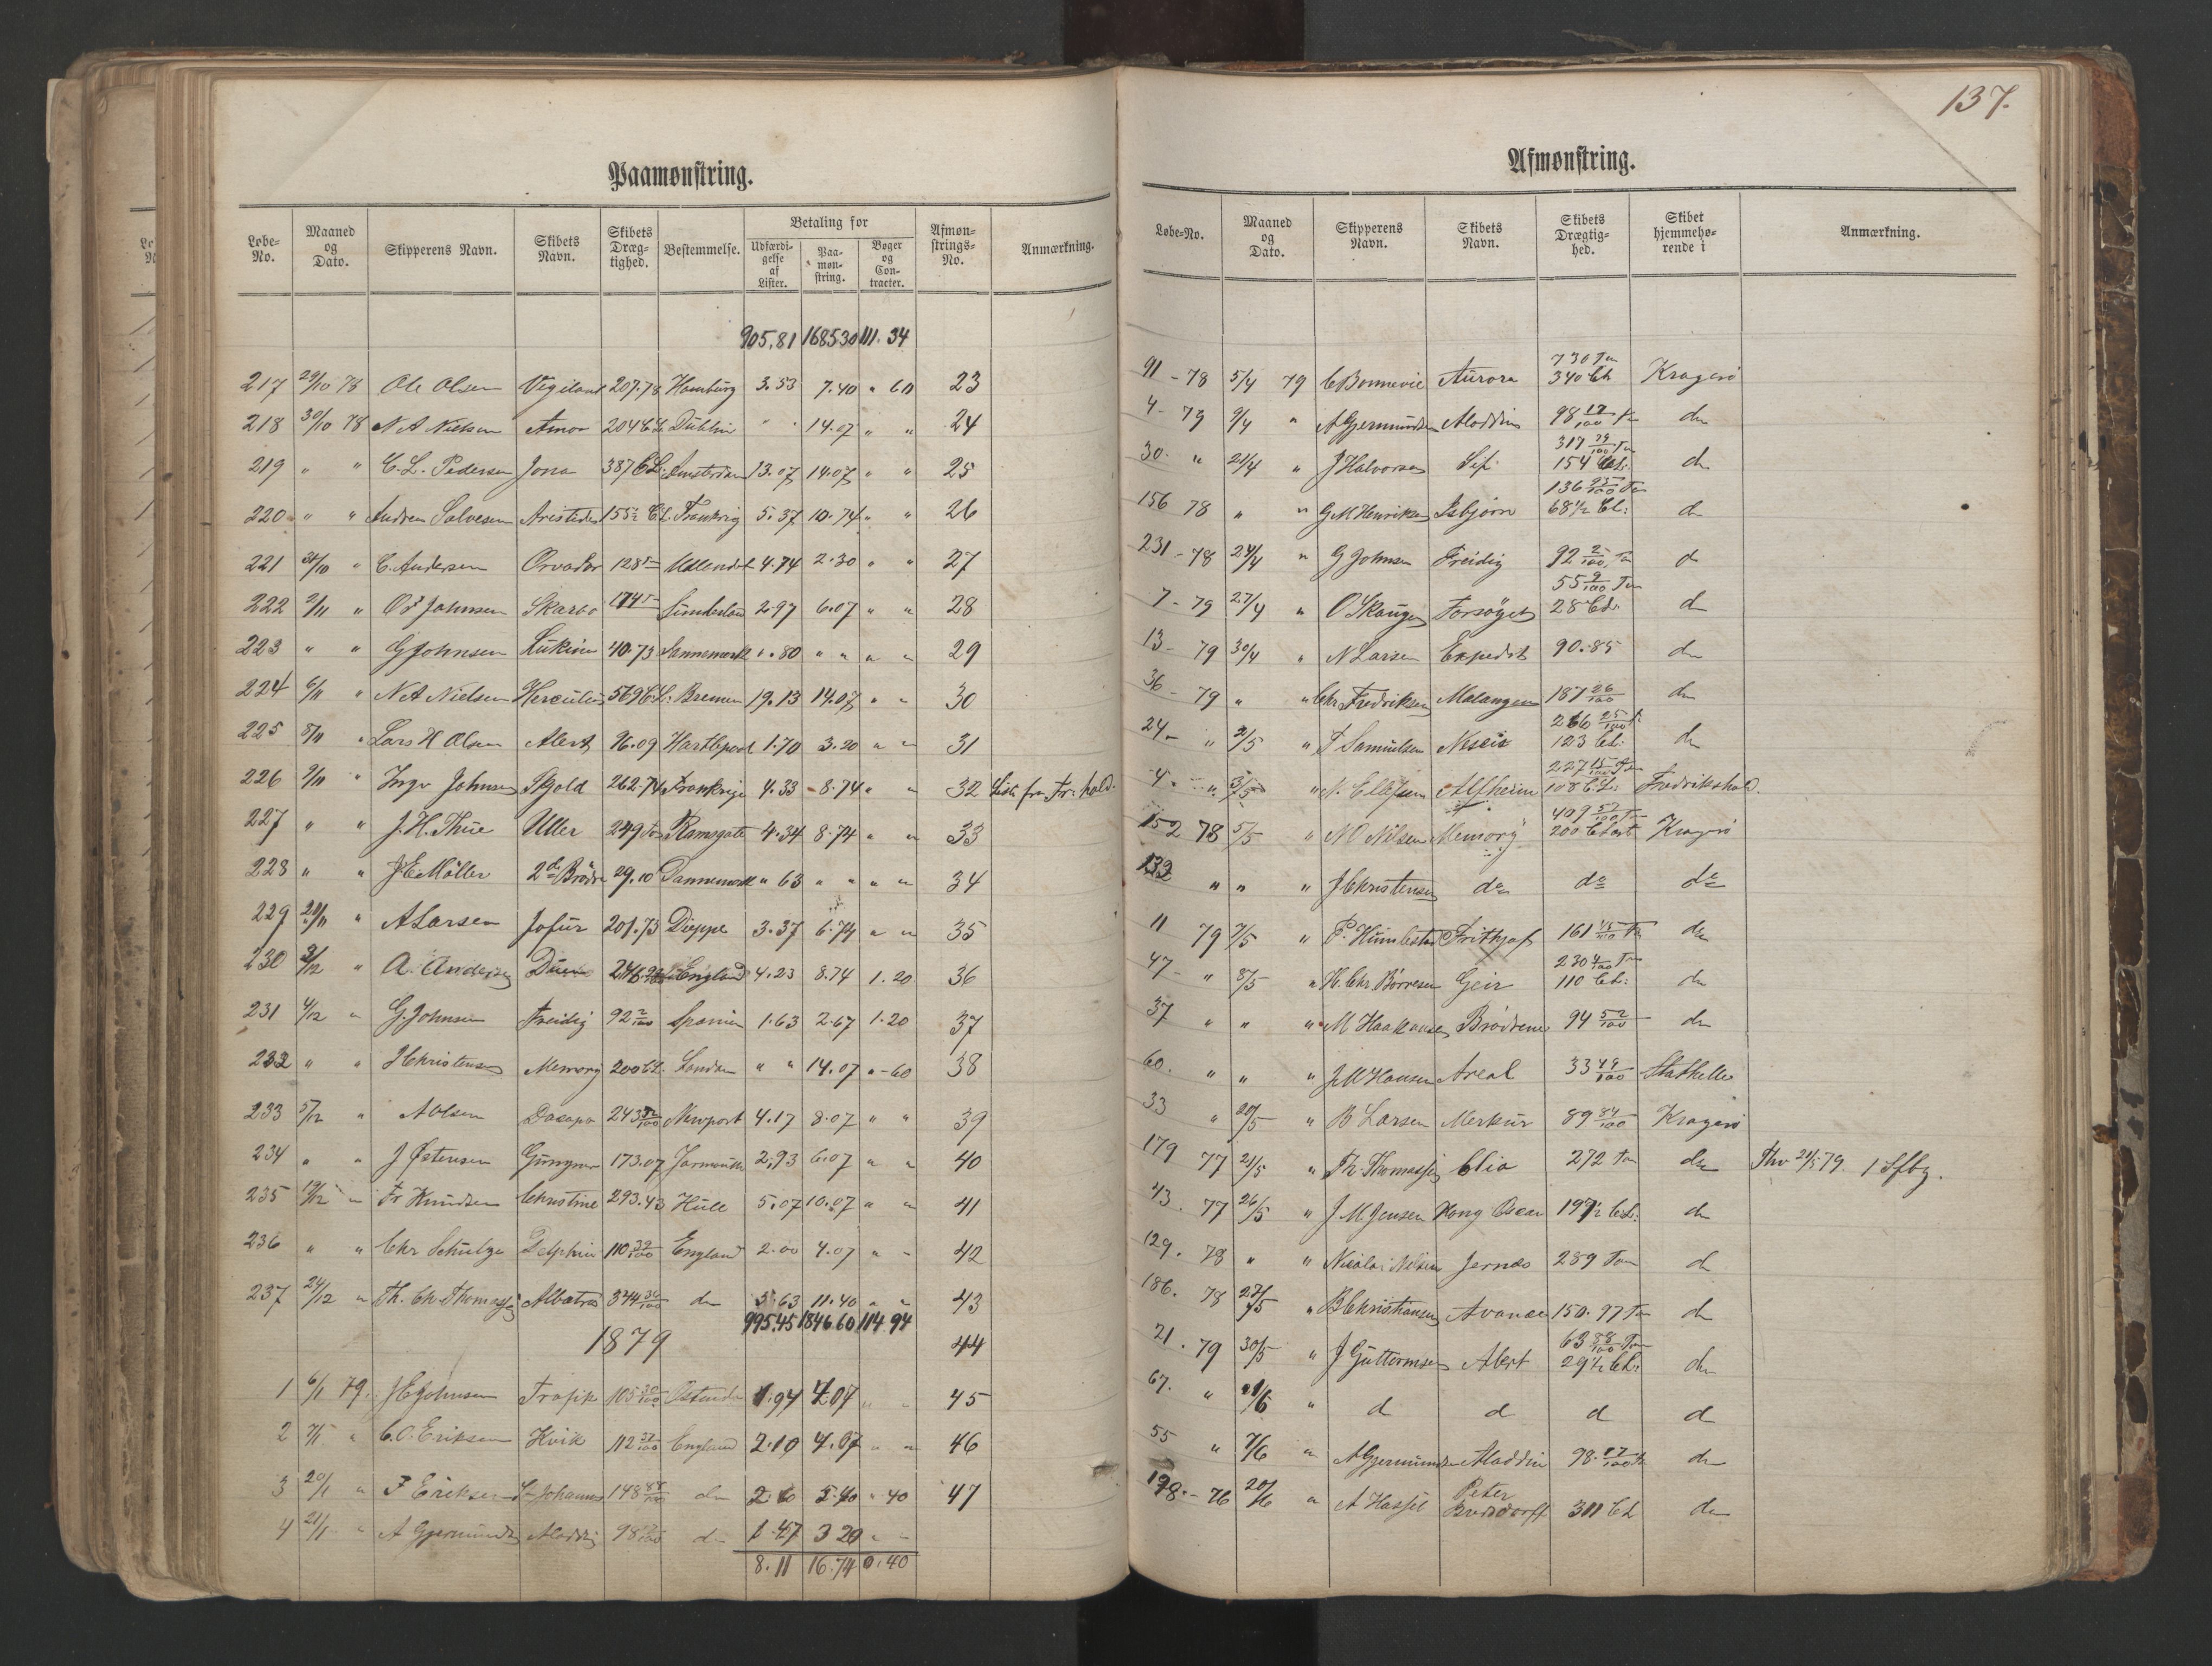 137.
Paamønstring.
Løbe-No. Maaned og Dato. Skipperens Navn. Skibets Navn. Skibets Dræg-tighed. Bestemmelse. Betaling for Udfærdi-gelse af Lister. Paa-møn-string. Bøger og Con-tracter. Afmøn-strings-No. Anmærkning.
905.81 1685.30 111.34
217 29/10 78 Ole Olsen Vigilant 207.78 Hamburg 3.53 7.40 " 60 23
218 30/10 78 N A Nielsen Amor 204 CL. Dublin " " 14.07 " " 24
219 " " C. L. Pedersen Jona 387 CL. Amsterdam 13.07 14.07 " " 25
220 " " Andreas Salvesen Aristides 155½ CL. Frankrig 5.37 10.74 " " 26
221 31/10 " C. Andersen Orvador 128 Udlandet 4.74 2.30 " " 27
222 2/11 " Johnsen Skarbo 174 Sunderland 2.97 6.07 " " 28
223 " " G Johnsen 40.73 Dannemark " 80 " " " " 29
224 6/11 " N A Nielsen Hercules 569 CL. Bremen 19.13 14.07 " " 30
225 8/11 " Lars H Olsen Alert 96.09 Hartlepool 1.70 3.20 " " 31
226 9/11 " Ingv Johnsen Skjold 262.74 Frankrige 4.33 8.74 " " 32 List fra Fr:hald.
227 " " J. H. Thue Uller 249 Ton Ramsgate 4.34 8.74 " " 33
228 " " J E Møller 2de Brødre 29.10 Dannemark " 63 " " " " 34
229 20/11 " A Larsen Jofur 201.73 Dieppe 3.37 6.74 " " 35
230 3/12 " A. Andersen England 4.23 8.74 1.20 36
231 4/12 " G. Johnsen Freidig 92 2/100 Spanien 1.63 2.67 1.20 37
232 " " J Christensen Memory 200 CL. London " " 14.07 " 60 38
233 5/12 " A Olsen 243 52/100 Newport 4.17 8.07 " " 39
234 " " J Østensen Gungner 173.07 Jarmouth 2.93 6.07 " " 40
235 19/12 " Fr Knudsen Christine 293.43 Hull 5.07 10.07 " " 41
236 " " Chr Schulze Delphin 110 39/100 England 2.00 4.07 " " 42
237 24/12 " Th. Chr Thomassen Albatros 344 36/100 do 5.63 11.40 " " 43
995.45 1846.60 114.94
1879 44
1 6/1 79. J E Johnsen Trafik 105 Ostende 1.94 4.07 " " 45
2 7/1 " C. O. Eriksen Hvik 112 37/100 England 2.10 4.07 " " 46
3 20/1 " F Eriksen St Johannes 148 88/100 do 2.60 5.40 " 40 47
4 21/1 " A Gjermundsen Aladdin 98 17/100 do 1.47 3.20 " "
8.11 16.74 0.40
Afmønstring.
Løbe-No. Maaned og Dato. Skipperens Navn. Skibets Navn. Skibets Drægtig-hed. Skibet hjemmehø-rende i Anmærkning.
91 - 78 5/4 79 C Bonnevie Aurora 730 Ton 340 CL Kragerø
4 - 79 9/4 " A Gjermundsen Aladdin 98 17/100 Ton do
30 " 21/4 " J Halvorsen Sif 317 79/100 Ton 154 CL: do
156 78 " " G M Henriksen Isbjørn 136 95/100 Ton 68½ CL: do
231 - 78 24/4 " G Johnsen Freidig 92 2/100 Ton do
7 - 79 27/4 " O Skauge Forsøget 55 9/100 Ton 28 CL: do
13 - 79 30/4 " N Larsen Expedit 90.85 do
36 - 79 " " Chr Fredriksen Malangen 187 26/100 do
24 - " 2/5 " T Samuelsen 260 25/100 123 CL: do
4 " 3/5 " N. Ellefsen Alfheim 227 15/100 Ton 108 CL. Fredrikshald.
152 78 5/5 " N O Nilsen Memory 409 57/100 Ton 200 CLæst Kragerø
132 " " " J Christensen do do do
11 79 7/5 " P. Humlestad Frithjof 161 Ton do
47 - " 8/5 " H. Chr. Børresen Geir 230 4/100 Ton 110 CL: do
37 " " " M Haakonsen Brødrene 94 52/100 do
60. " " " J M Hansen Areal 33 49/100 Stathelle
33 " 20/5 " B Larsen Merkur 89 84/100 Kragerø
179 77 21/5 " Th. Thomassen Clio 272 Ton do Thv 21/5 79. 1 Sfbg.
43. 77 26/5 " J M Jensen Kong Oscar 197½ CL: do
129. 78 " " Nicolai Nilsen Jernæs 289 Ton do
186. 78 27/5 " B Christiansen Avance 150.97 Ton do
21. 79 30/5 " J Guttormsen Alert 63 88/100 Ton 29½ CL: do
67. " 1/6 " d d d d
55 " 7/6 " A Gjermundsen Aladdin 98 17/100 T do
198 - 76 20/6 " A Hassel Peter 311 CL do